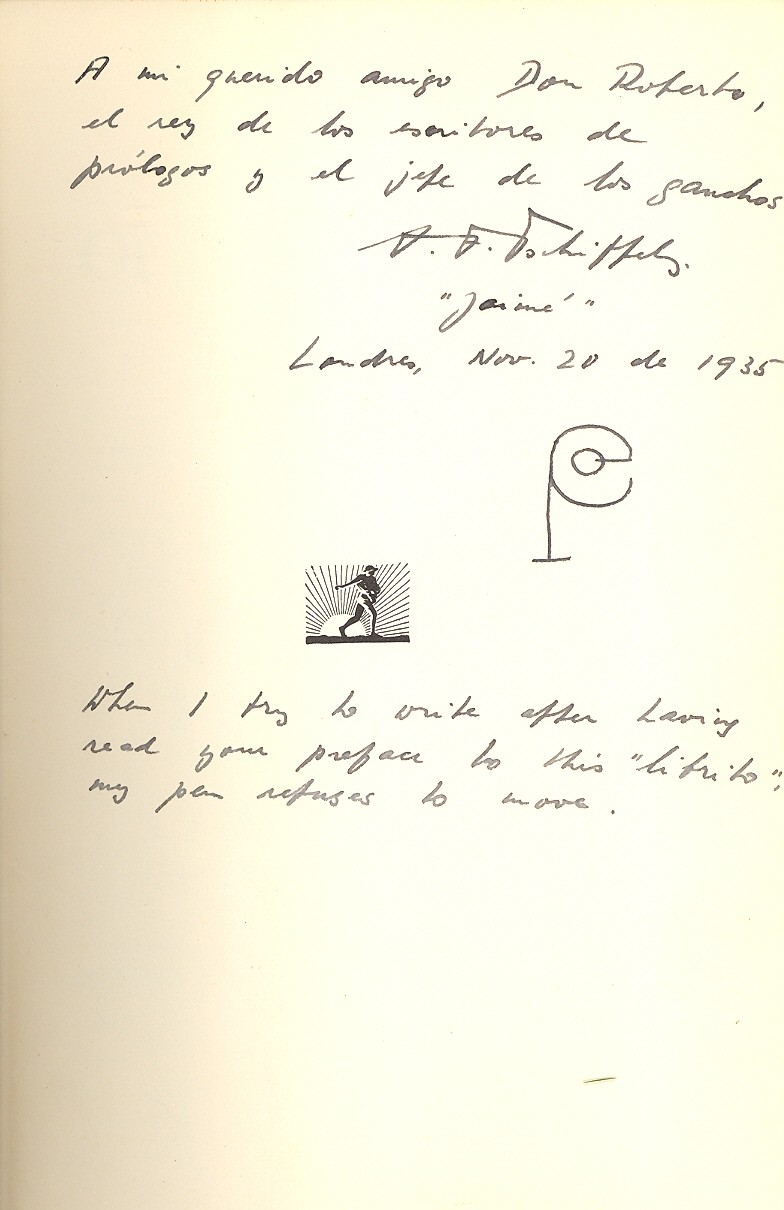 A mi querido amigo Don Roberto,
el rey de los escritores de
prólogos y el jefe de los gauchos
A. F. Tschiffely.
"Jaimé"
Londres, Nov. 20 de 1935
When I try to write after having
read your preface to this "librito",
my pen refuses to move.